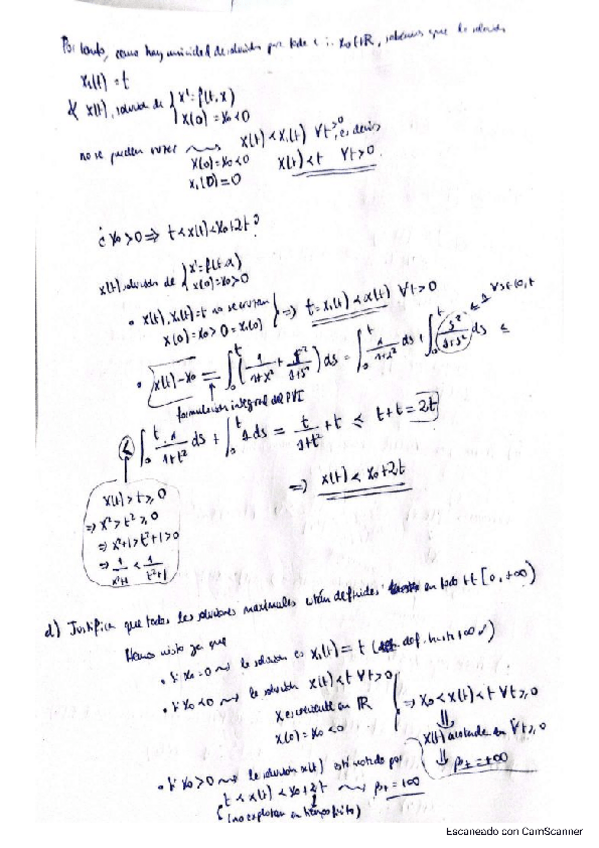 Por tanto, como hay unicidad de solución para todo x₀ ∈ ℝ, sabemos que la solución
x₁(t) = t
x(t), solución de { x' = f(t,x)
x(0) = x₀ < 0
no se pueden cruzar ⇝ x(t) < x₁(t) ∀t>0, es decir
x(0) = x₀ < 0 x(t) < t ∀t > 0
x₁(0) = 0
¿ x₀ > 0 ⇒ t < x(t) < x₀ + 2t ?
x(t), solución de { x' = f(t,x)
x(0) = x₀ > 0
• x(t), x₁(t) = t no se cruzan
x(0) = x₀ > 0 = x₁(0) } ⇒ t = x₁(t) < x(t) ∀t > 0
• x(t) - x₀ = ∫₀ᵗ ( 1/(1+x²) + s²/(1+s²) ) ds = ∫₀ᵗ 1/(1+x²) ds + ∫₀ᵗ s²/(1+s²) ds ≤
formulación integral del PVI
< ∫₀ᵗ 1/(1+t²) ds + ∫₀ᵗ 1 ds = t/(1+t²) + t ≤ t + t = 2t
⇒ x(t) < x₀ + 2t
x(t) > t ≥ 0
⇒ x² > t² ≥ 0
⇒ x²+1 > t²+1 > 0
⇒ 1/(x²+1) < 1/(t²+1)
d) Justifica que todas las soluciones maximales están definidas en todo t ∈ [0, +∞)
Hemos visto ya que
• Si x₀ = 0 ⇝ la solución es x₁(t) = t ( def. hasta +∞ ✓)
• Si x₀ < 0 ⇝ la solución x(t) < t ∀t > 0
x es creciente en ℝ
x(0) = x₀ < 0 } ⇒ x₀ < x(t) < t ∀t ≥ 0
⇓
x(t) acotada en ∀t ≥ 0
⇓ β₊ = +∞
• Si x₀ > 0 ⇝ la solución x(t) está acotada por
t < x(t) < x₀ + 2t ⇝ β₊ = +∞
(no explotan en tiempo finito)
Escaneado con CamScanner